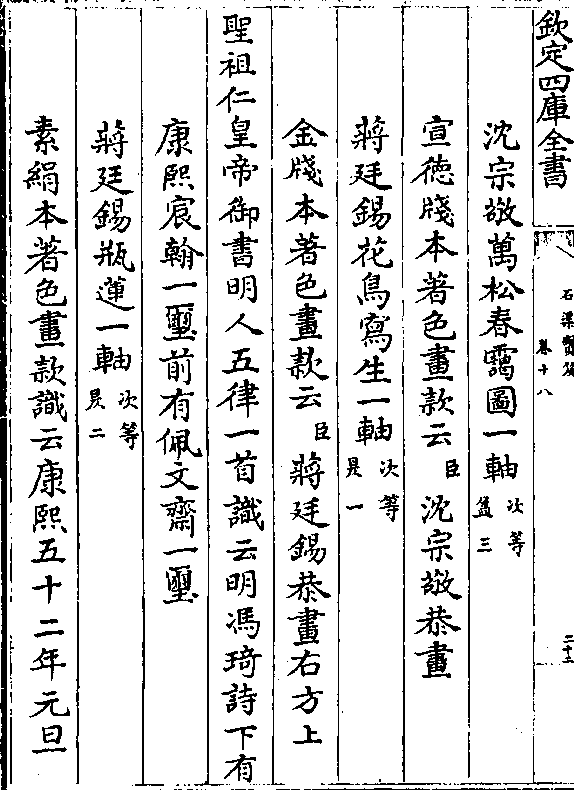 欽定四庫全書
石渠寶笈
卷十八
沈宗敬萬松春靄圖一軸次等盈三
宣德牋本著色畫款云臣沈宗敬恭畫
蔣廷錫花鳥寫生一軸次等昃一
金牋本著色畫款云臣蔣廷錫恭畫右方上
聖祖仁皇帝御書明人五律一首識云明馮琦詩下有
康熙宸翰一璽前有佩文齋一璽
蔣廷錫瓶蓮一軸次等昃二
素絹本著色畫款識云康熙五十二年元旦